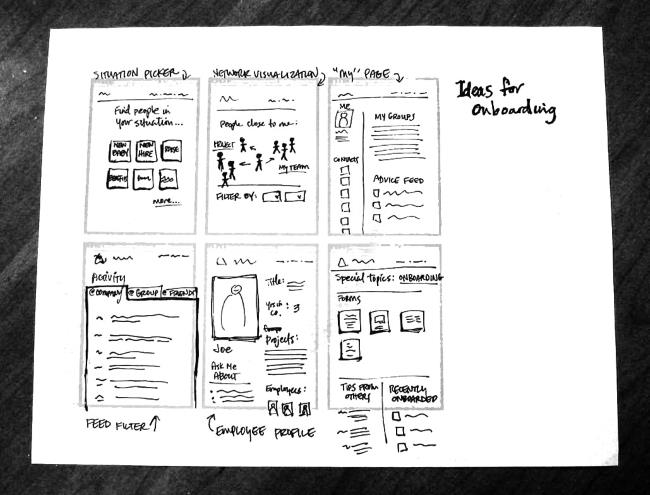 SITUATION PICKER
NETWORK VISUALIZATION
"MY" PAGE
Ideas for
onboarding
Find people in
your situation...
NEW
BABY
NEW
HIRE
more...
People close to me:
PROJECT
MY TEAM
FILTER BY:
ME
MY GROUPS
CONTACTS
ADVICE FEED
ACTIVITY
@COMPANY
@GROUP
@FRIENDS
FEED FILTER
Title:
Yrs in
co. : 3
Projects:
Joe
Ask Me
ABOUT
Employees:
EMPLOYEE PROFILE
Special topics: ONBOARDING
FORMS
TIPS FROM
OTHERS
RECENTLY
ONBOARDED